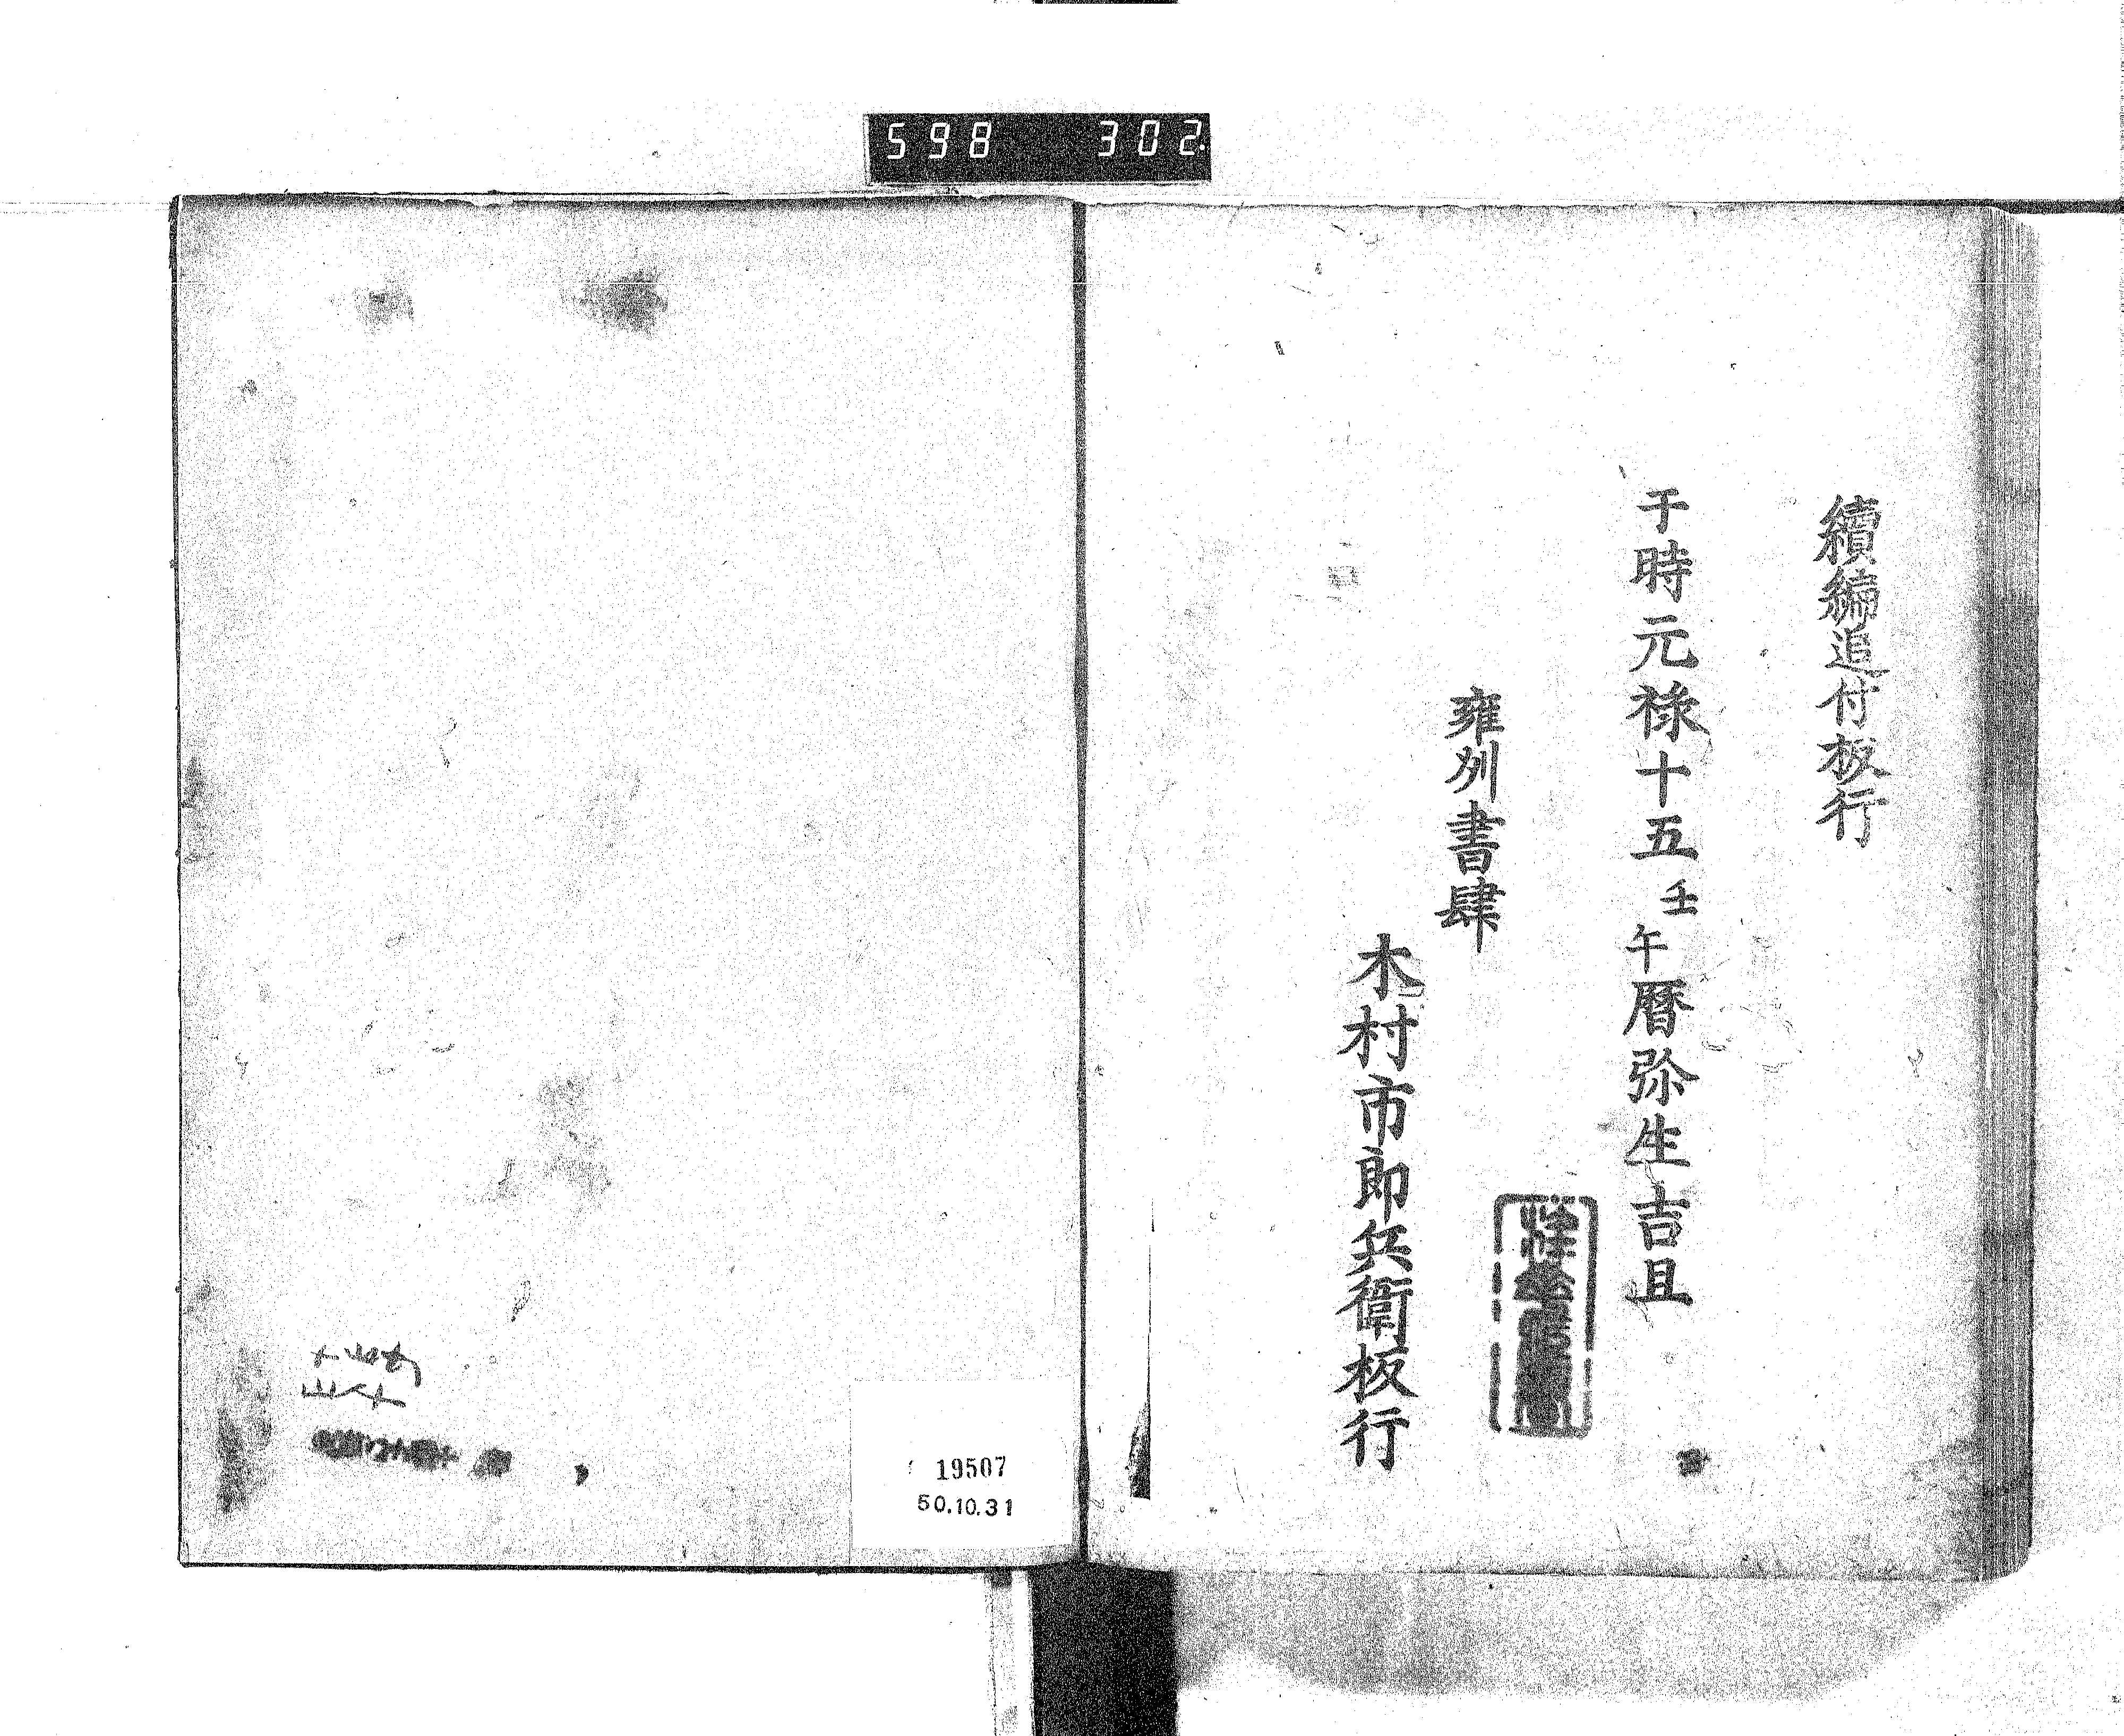 598 302
續編追付板行
于時元祿十五壬午暦弥生吉旦
雍州書肆
木村市郎兵衛板行
19507
50.10.31